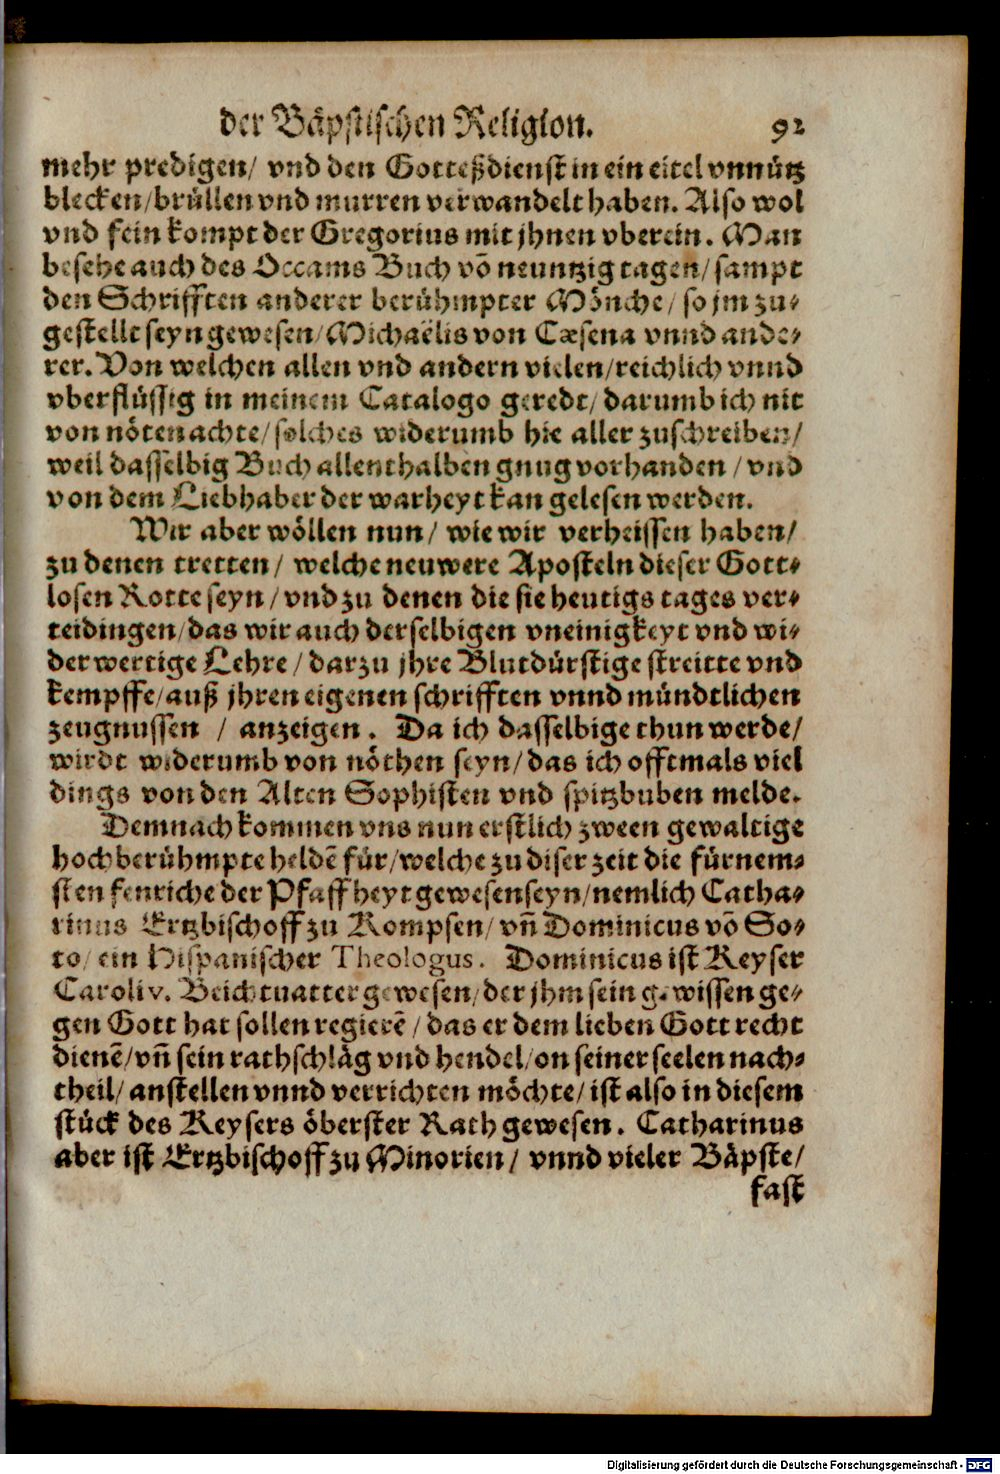 der Bäpstischen Religion. 92
mehr predigen/ vnd den Gotteßdienst in ein eitel vnnütz
blecken/brüllen vnd murren verwandelt haben. Also wol
vnd fein kompt der Gregorius mit jhnen vberein. Man
besehe auch des Occams Buch võ neuntzig tagen/ sampt
den Schrifften anderer berühmpter Mönche/ so jm zu-
gestellt seyn gewesen/Michaëlis von Cæsena vnnd ande-
rer. Von welchen allen vnd andern vielen/reichlich vnnd
vberflüssig in meinem Catalogo geredt/ darumb ich nit
von nöten achte/ solches widerumb hie aller zuschreiben/
weil dasselbig Buch allenthalben gnug vorhanden / vnd
von dem Liebhaber der warheyt kan gelesen werden.
Wir aber wöllen nun/ wie wir verheissen haben/
zu denen tretten/ welche neuwere Aposteln dieser Gott-
losen Rotte seyn/ vnd zu denen die sie heutigs tages ver-
teidingen/das wir auch derselbigen vneinigkeyt vnd wi-
derwertige Lehre/ darzu jhre Blutdürstige streitte vnd
kempffe/auß jhren eigenen schrifften vnnd mündtlichen
zeugnussen / anzeigen. Da ich dasselbige thun werde/
wirdt widerumb von nöthen seyn/das ich offtmals viel
dings von den Alten Sophisten vnd spitzbuben melde.
Demnach kommen vns nun erstlich zween gewaltige
hochberühmpte heldẽ für/welche zu diser zeit die fürnem-
sten fenriche der Pfaffheyt gewesen seyn/nemlich Catha-
rinus Ertzbischoff zu Kompsen/ vñ Dominicus võ So-
to/ ein Hispanischer Theologus. Dominicus ist Keyser
Caroli v. Beichtuatter gewesen/der jhm sein gewissen ge-
gen Gott hat sollen regierẽ/ das er dem lieben Gott recht
dienẽ/vñ sein rathschläg vnd hendel/on seiner seelen nach-
theil/ anstellen vnnd verrichten möchte/ ist also in diesem
stück des Keysers öberster Rath gewesen. Catharinus
aber ist Ertzbischoff zu Minorien/ vnnd vieler Bäpste/
fast
Digitalisierung gefördert durch die Deutsche Forschungsgemeinschaft - DFG